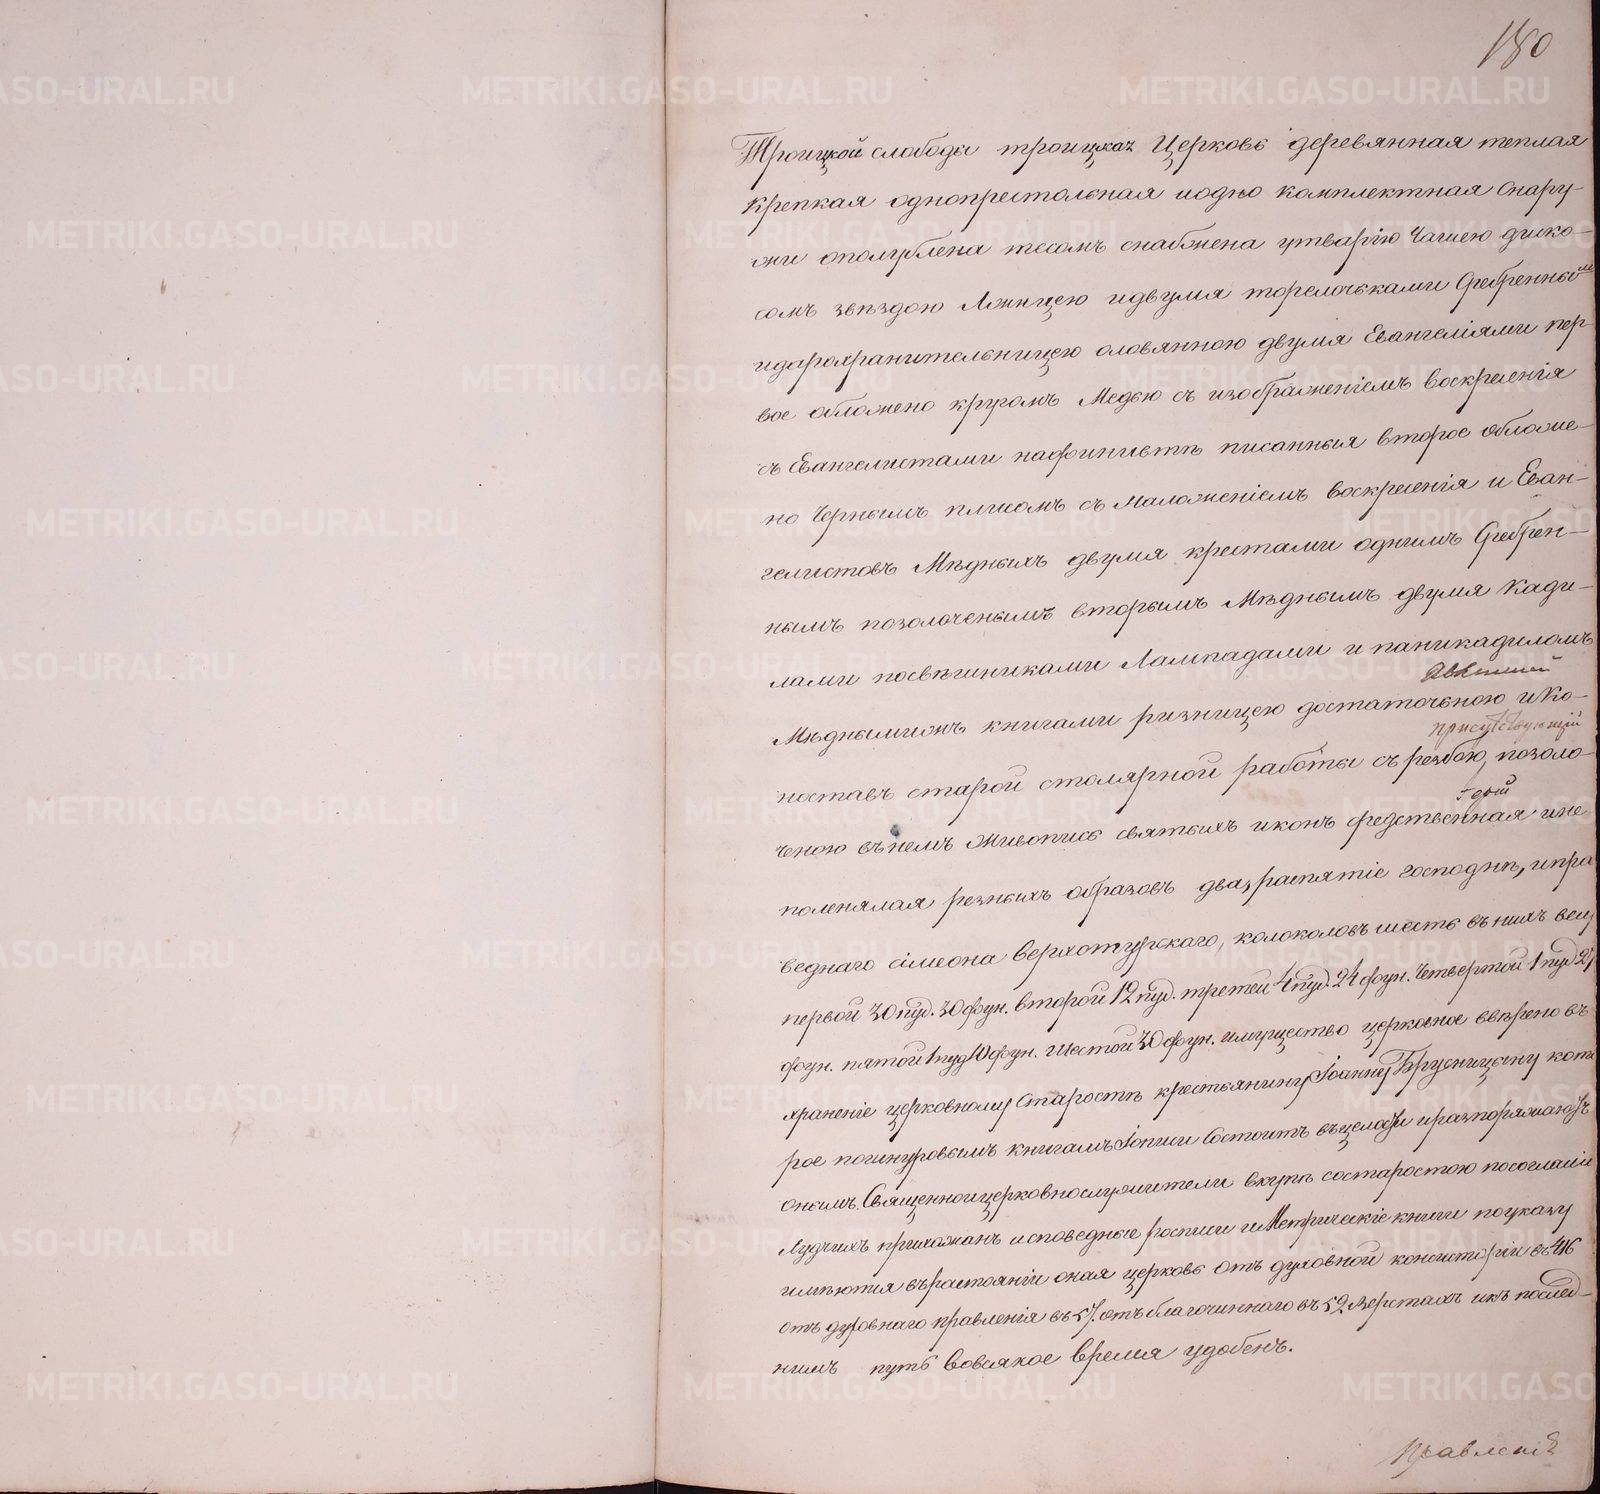 180
Троицкой слободы троицкая Церковь деревянная теплая
крепкая однопрестольная иодно комплектная снару-
жи опалублена тесомъ снабжена утварію Чашею диско-
сомъ звѣздою Лжицею идвумя торелочьками Сребренны
идарохранительницею оловянною двумя Евангеліями пер
вое обложено кругомъ Медью съ изображеніемъ воскресенія
съ Евангелистами нафинифтѣ писанныя второе обложе-
но Чернымъ плисомъ съ наложеніемъ воскресенія и Еван-
гелистовъ Мѣдныхъ двумя крестами однимъ Сребрен-
нымъ позолоченымъ вторымъ Мѣднымъ двумя Кади-
лами посвѣшниками Лампадами и паникадиломъ
Мѣднымиожъ книгами ризницею достаточьною иКо-
присутствующій
ноставъ старой столярной работы съ резбою, позоло-
ченою внемъ живопись святыхъ иконъ средственная ине
полинялая резныхъ образовъ два, распятіе господнѣ, ипра
веднаго сімеона Верхотурскаго, колоколовъ шесть въ нихъ весу
первой 30 пуд. 30 фун. второй 12 пуд. третей 4 пуд. 24 фун. Четвертой 1 пуд 27
фун. пятой 1 пуд 10 фун. Шестой 30 фун. имущество церковное ввѣрено въ
храненіе церковному Старостѣ крестьянину Іоанну Брусницыну кото
рое пошнуровымъ книгамъ Іописи Состоитъ въцелости иразпоряжаютъ
онымъ Священноицерковнослужители вкупѣ состаростою посогласію
Лудчихъ прихожанъ исповедные росписи иМетрическіе книги поуказу
имѣются въразстояніи оная церковь Отъ духовной консисторіи въ 416
отъ духовнаго правленія въ 57. отъ благочиннаго въ 52 верстахъ икъ послед-
нимъ путь Вовсякое Время удобенъ.
Правленія